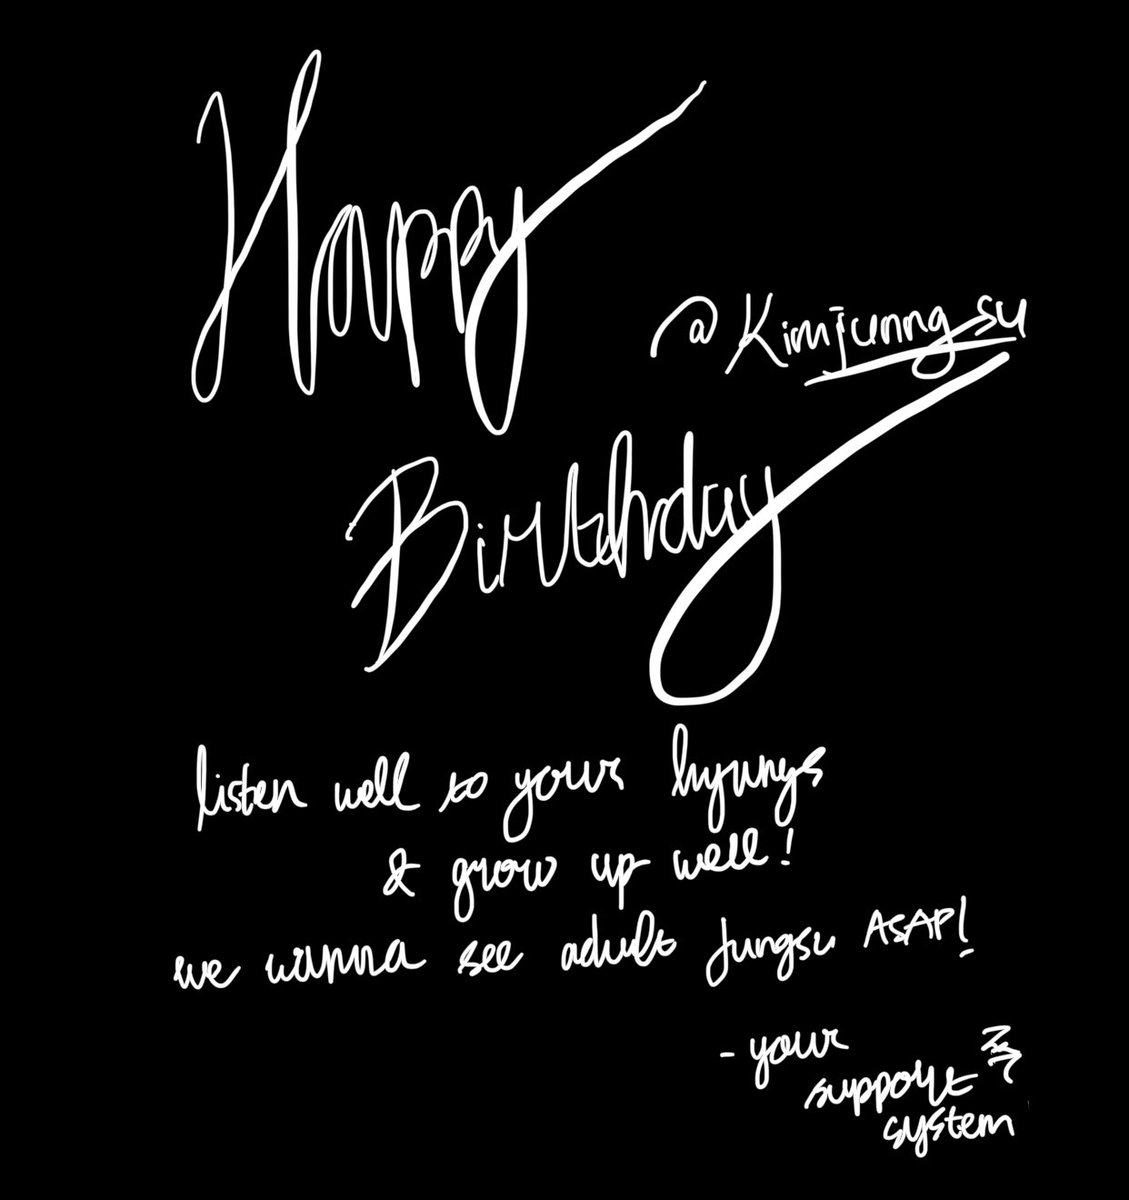 Happy
@Kimjunng_su
Birthday
listen well to your hyungs
& grow up well!
we wanna see adult Jungsu ASAP!
- your
support
system